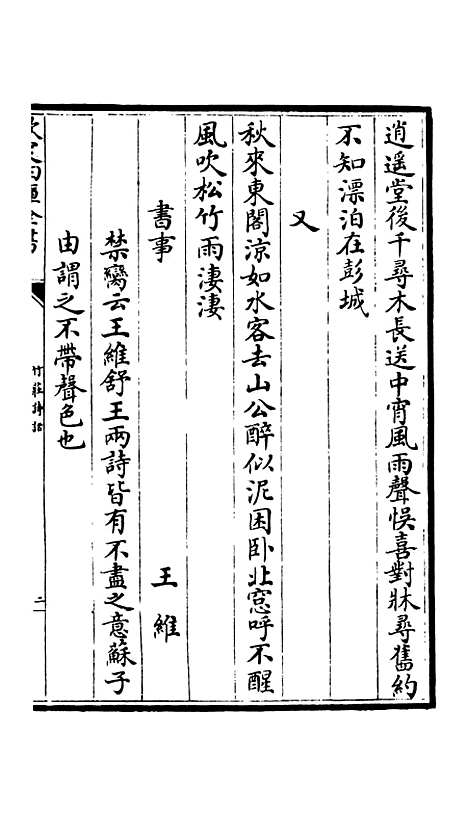 逍遥堂後千尋木長送中宵風雨聲悞喜對牀尋舊約
不知漂泊在彭城
又
秋來東閣涼如水客去山公醉似泥困卧北窓呼不醒
風吹松竹雨淒淒
書事 王維
禁臠云王維舒王兩詩皆有不盡之意蘇子
由謂之不帶聲色也
竹莊詩話
二